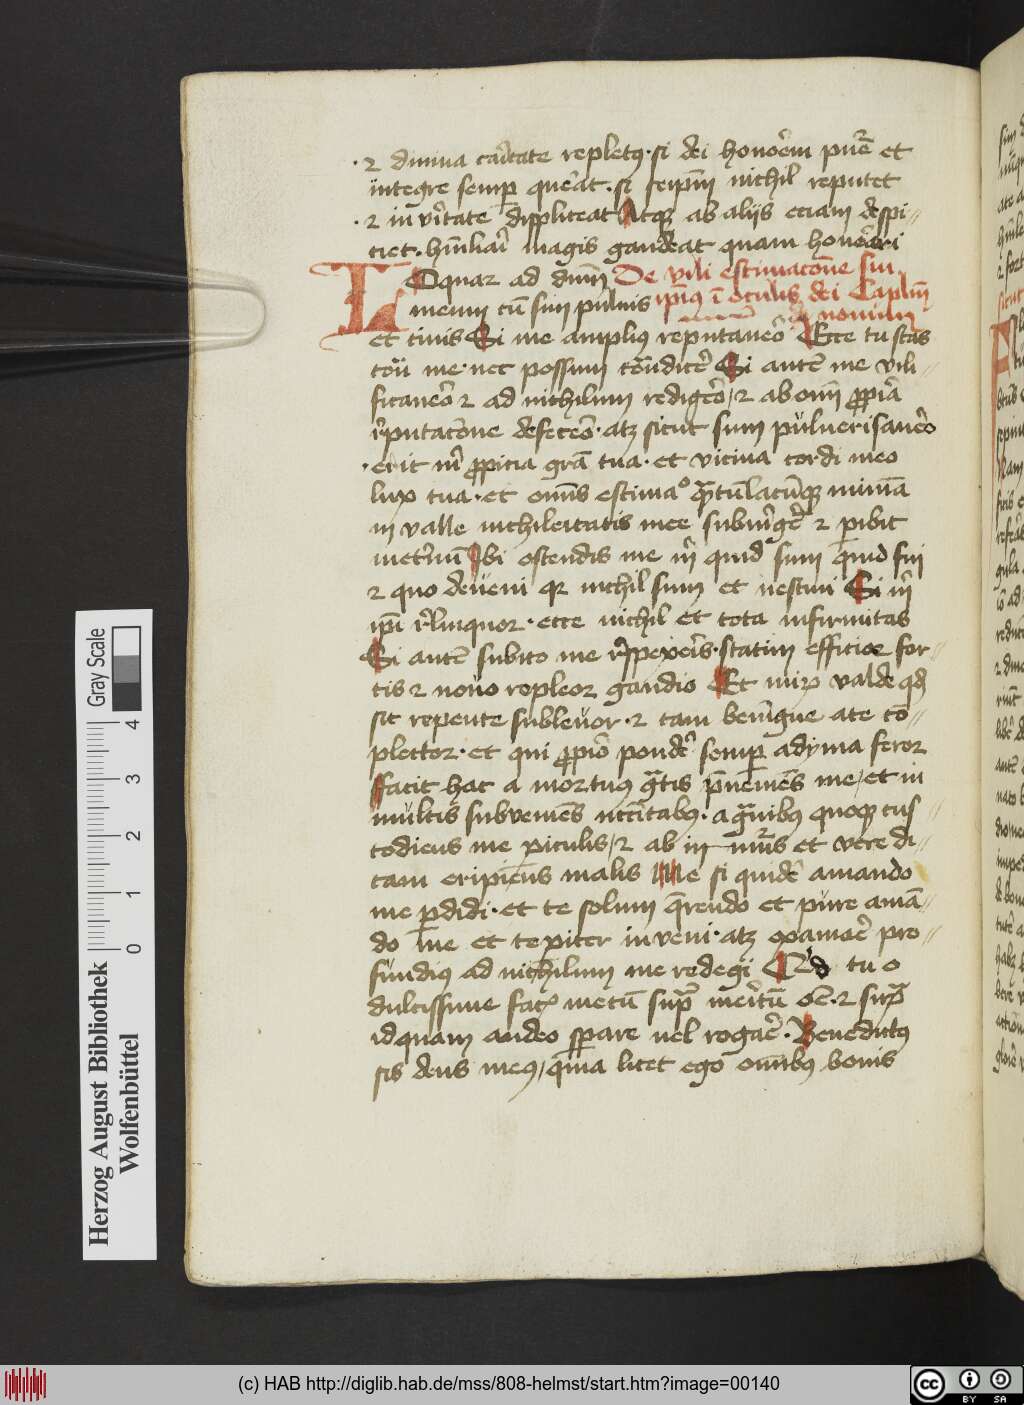 ⁊ diuina caritate repletꝰ · si dei honorem pure et
integre semꝑ querat · si seipm nichil reputet
⁊ in vitate displiceat Atqꝫ ab alijs eciam despi
ciet · humliari magis gaudeat quam honorari
LOquar ad dnm De vili estimacone sui
meum cu sim puluis ipius i oculis dei Caplm
nonum
et cinis Si me amplius reputauero Ecce tu stas
cont me · nec possum contdice Si aute me vili
ficauero ⁊ ad nichilum redigero / ⁊ ab omi ppria
reputacone defecero · atqꝫ sicut sum puluerisauero
erit m ppicia gra tua · et vicina cordi meo
lux tua · et omnis estimao qntulacunqꝫ minima
in valle nichileitatis mee submerget ⁊ pibit
ineternu Ibi ostendis me m quid sum quid fui
⁊ quo deueni qꝛ nichil sum et nesciui Si m
ipi relinquor · ecce nichil et tota infirmitas
Si aute subito me respexeris · statim efficior for
tis ⁊ nouo repleor gaudio Et mirum valde qd
sic repente subleuor · ⁊ tam benigne ate co
plector · et qui pprio pondere semꝑ adyma feror
ffacit hac amor tuus gratis preueniens me / et in
multis subueniens necitatibꝰ · agrauibꝰ quoqꝫ cus
todiens me piculis / ⁊ ab innumeris et vere di
cam eripiens malis Me si quide amando
me pdidi · et te solum querendo et pure aman
do me et te piter inueni · atqꝫ ex amore pro
fundius ad nichilum me redegi Qd tu o
dulcissime facis mecu supra meritu oe · ⁊ supra
idquam audeo sperare uel rogare · Benedictus
sis deus meus / quia licet ego omnibꝰ bonis
Herzog August Bibliothek
Wolfenbüttel
0 1 2 3 4
Gray Scale
(c) HAB http://diglib.hab.de/mss/808-helmst/start.htm?image=00140
cc BY SA